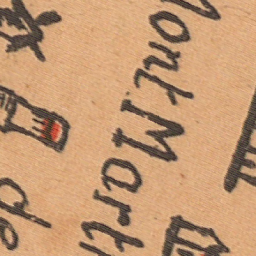 Mont Mart
de